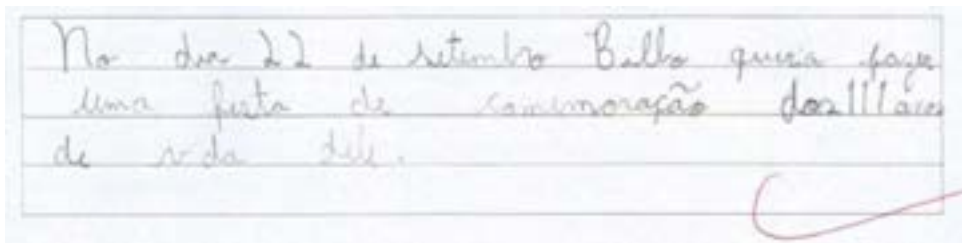 No dia 22 de setembro Bilbo queria fazer
uma festa de comemoração dos 111 anos
de vida dele.